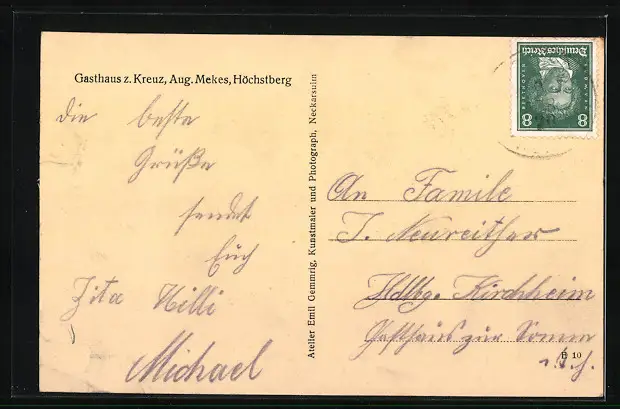 Gasthaus z. Kreuz, Aug. Mekes, Höchstberg
die beste
Grüße
sendet
Euch
Zita Willi
Michael
Atelier Emil Gemmrig, Kunstmaler und Photograph, Neckarsulm
Deutsches Reich
8 8
BEETHOVEN
An Familie
J. Neureither
Hdlbg. Kirchheim
Gasthaus zur Sonne
B 10